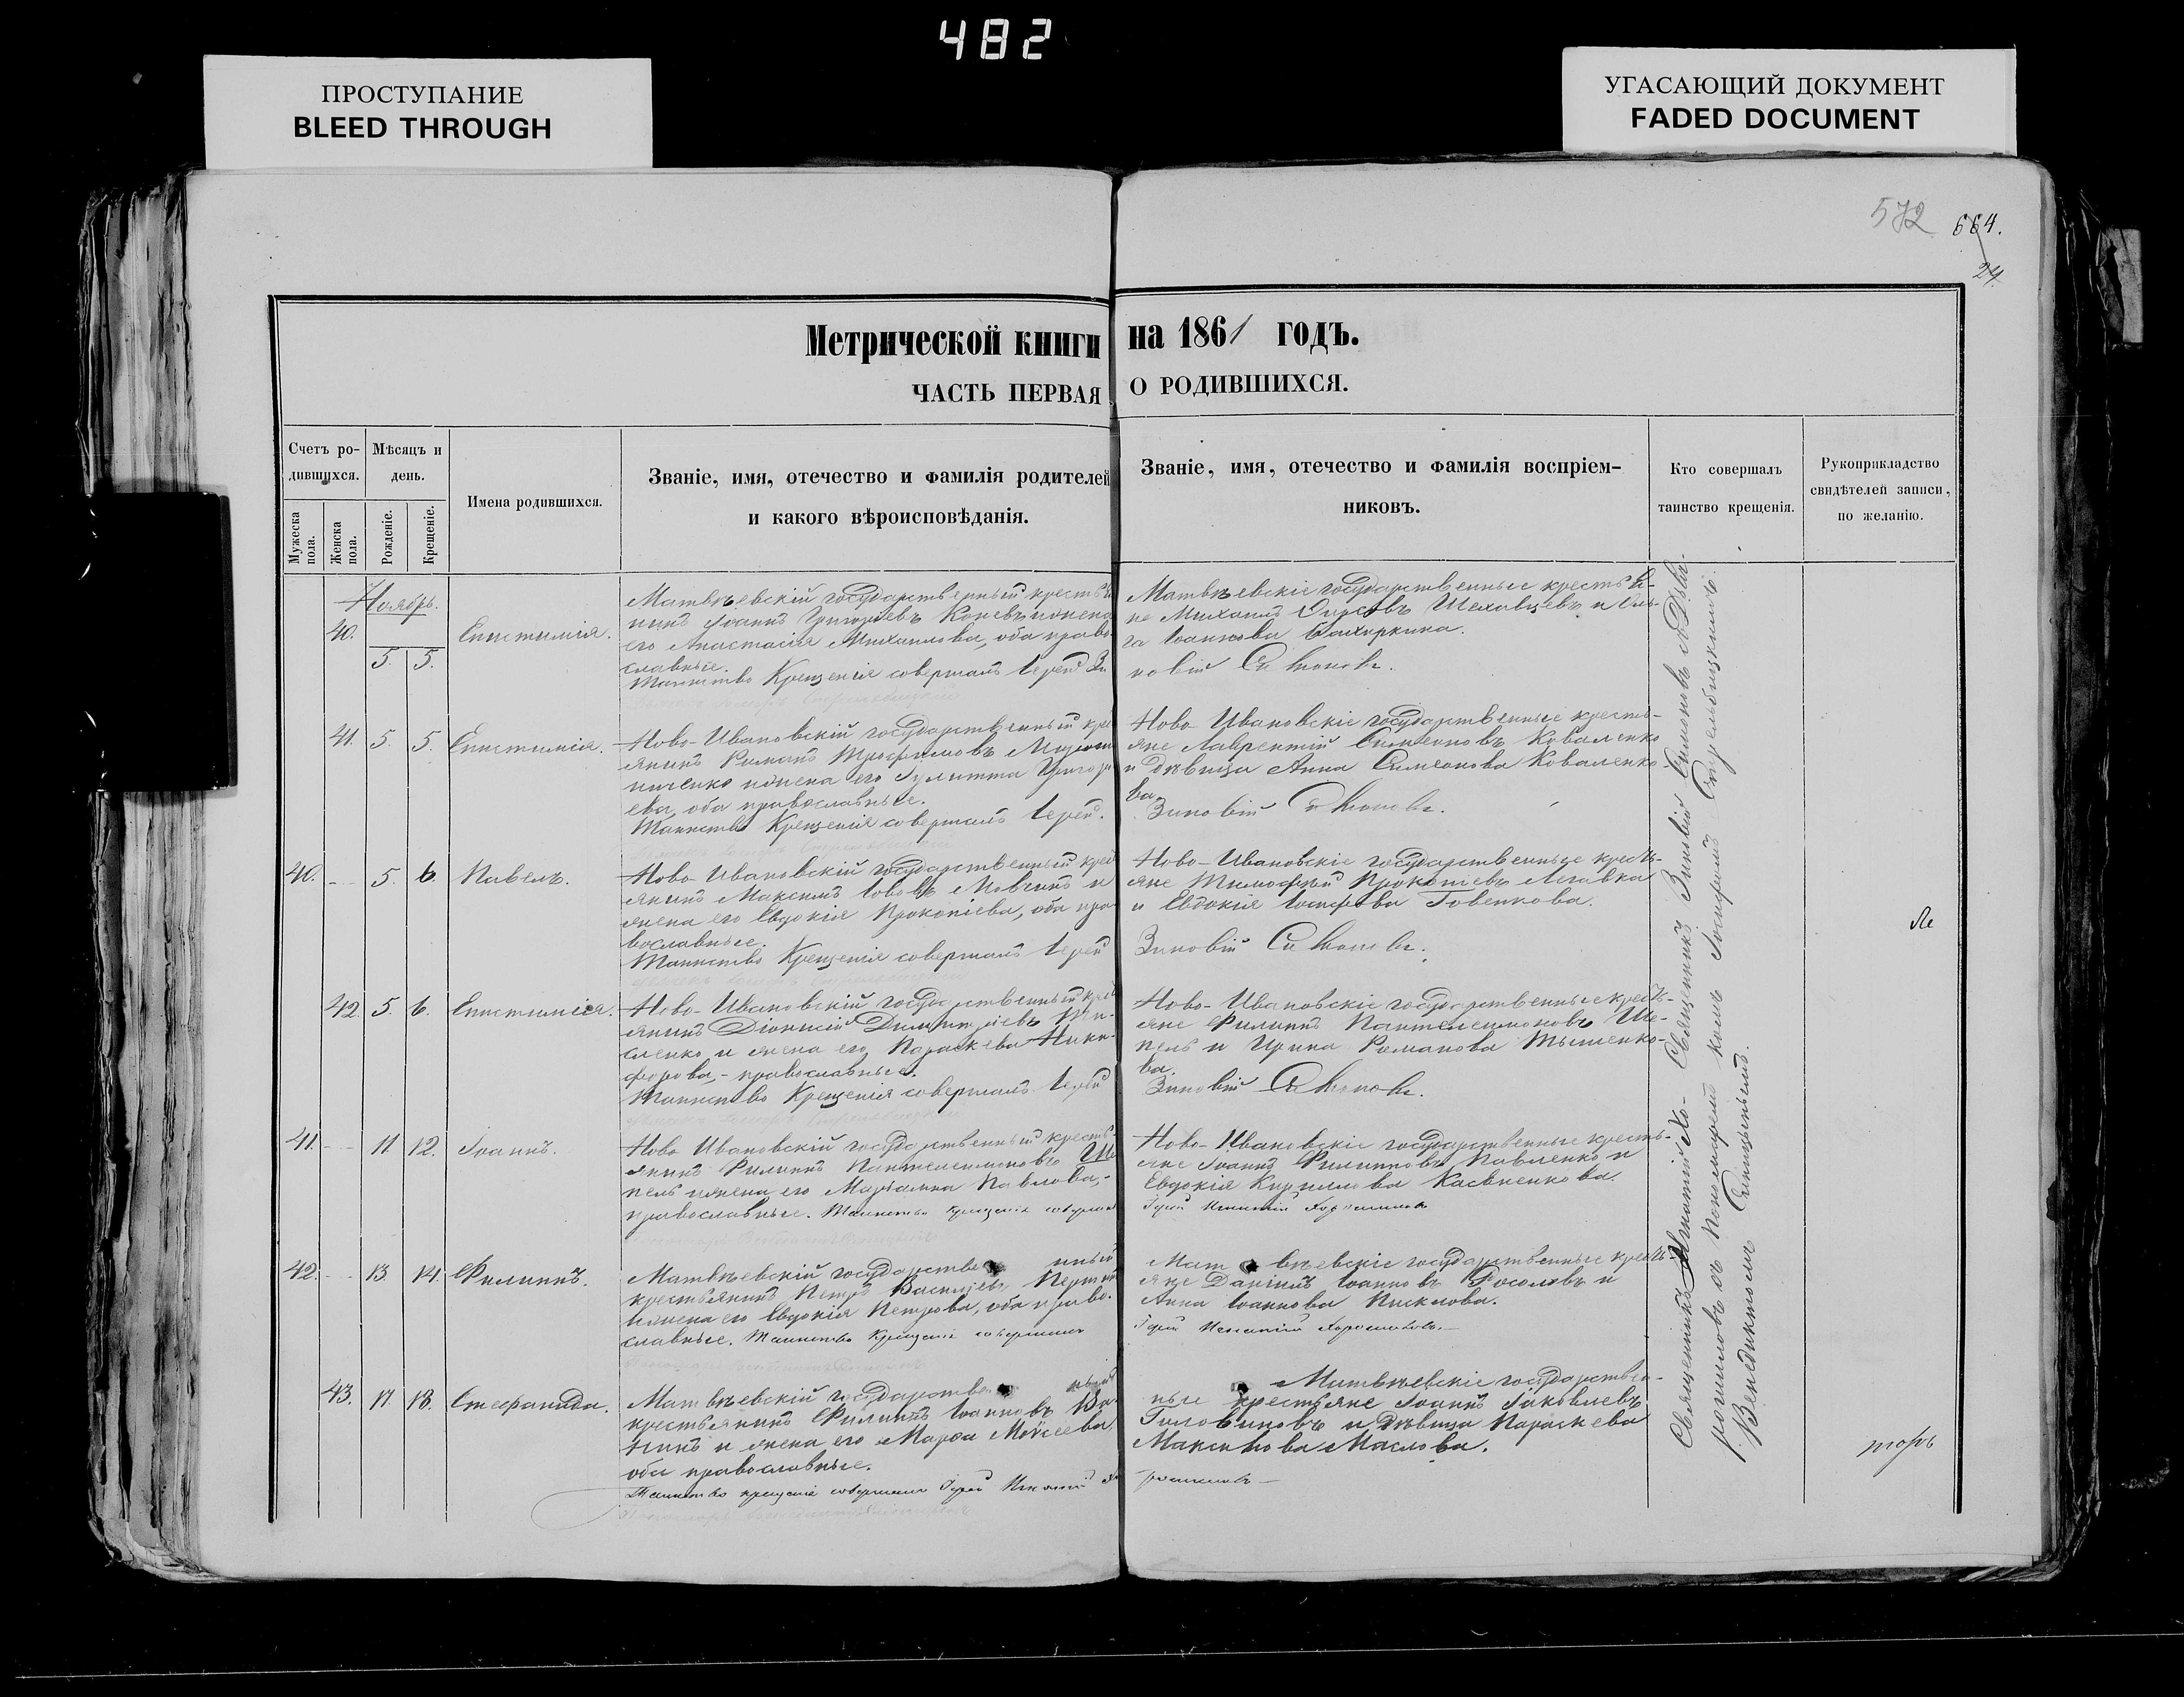 482
ПРОСТУПАНИЕ
BLEED THROUGH
УГАСАЮЩИЙ ДОКУМЕНТ
FADED DOCUMENT
572 664.
24
Метрической книги на 1861 годъ.
ЧАСТЬ ПЕРВАЯ О РОДИВШИХСЯ.
Счетъ ро-
дившихся.
Мужеска пола.
Женска пола.
Мѣсяцъ и
день.
Рожденіе.
Крещеніе.
Имена родившихся.
Званіе, имя, отечество и фамилія родителей
и какого вѣроисповѣданія.
Званіе, имя, отечество и фамилія воспріем-
никовъ.
Кто совершалъ
таинство крещенія.
Рукоприкладство
свидѣтелей записи,
по желанію.
Ноябрь.
40. 5. 5. Епистимія.
Матвѣевскій государственный крестья
нинъ Іоаннъ Григоріевъ Коневъ и жена
его Анастасія Михаилова, оба право
славные.
Таинство Крещенія совершалъ Іерей Зи
Матвѣевскіе государственные крестья-
не Михаилъ
га Іоаннова
новій Симоновъ.
41. 5. 5. Епистимія.
Ново-Ивановскій государственный крес
янинъ Романъ Трофимовъ
ниченко и жена его Іулитта Григорі
ева, оба православные.
Таинство Крещенія совершалъ Іерей.
Ново-Ивановскіе государственные кресть-
яне Лаврентій Симеоновъ Коваленко
и дѣвица Анна Симеонова Коваленко-
ва.
Зиновій Симоновъ.
40. 5. 6. Павелъ.
Ново-Ивановскій государственный крес
янинъ Максимъ Іововъ Мовчанъ и
жена его Евдокія Прокопіева, оба пра-
вославные.
Таинство Крещенія совершалъ Іерей
Ново-Ивановскіе государственные кресть-
яне Тимофей Прокопіевъ Легавка
и Евдокія Іосифова Говенкова.
Зиновій Симоновъ.
42. 5. 6. Епистимія.
Ново-Ивановскій государственный крес
янинъ Діонисій Димитріевъ
сленко и жена его Параскева Ники-
форова, - православные.
Таинство Крещенія совершалъ Іерей
Ново-Ивановскіе государственные кресть-
яне Филиппъ Пантелеимоновъ Ше-
пель и Ирина Романова Тышенко-
ва.
Зиновій Симоновъ.
41. 11 12. Іоаннъ.
Ново Ивановскій государственный кресть-
янинъ Филиппъ Пантелеимоновъ Ше
пель и жена его Маріамна Павлова, -
православные. Таинство крещенія совершалъ
Ново-Ивановскіе государственные кресть-
яне Іоаннъ Филипповъ Павленко и
Евдокія Кириллова Касьяненкова.
Іерей Игнатій Хорошиловъ
42. 13 14. Филиппъ.
Матвѣевскій государственный
крестьянинъ Петръ Василіевъ
и жена его Евдокія Петрова, оба право-
славные. Таинство Крещенія совершалъ
Матвѣевскіе государственные кресть-
яне Даніилъ Іоанновъ Росоловъ и
Анна Іоаннова Пискло́ва.
Іерей Игнатій Хорошиловъ. -
43. 17. 18. Стефанида.
Матвѣевскій государственный
крестьянинъ Филиппъ Іоанновъ
и жена его Марфа Моисеева,
оба православные.
Таинство крещенія совершалъ Іерей Игнатій Хо
Матвѣевскіе государствен-
ные крестьяне Іоаннъ Іаковлевъ
Головиновъ и дѣвица Параскева
Максимова Маслова.
рошиловъ -
Священникъ Игнатій Хо- Священникъ Зиновій Симоновъ
рошиловъ съ Пономаремъ Іосифомъ Стрельбицкимъ.
Венедиктомъ Синицынымъ.